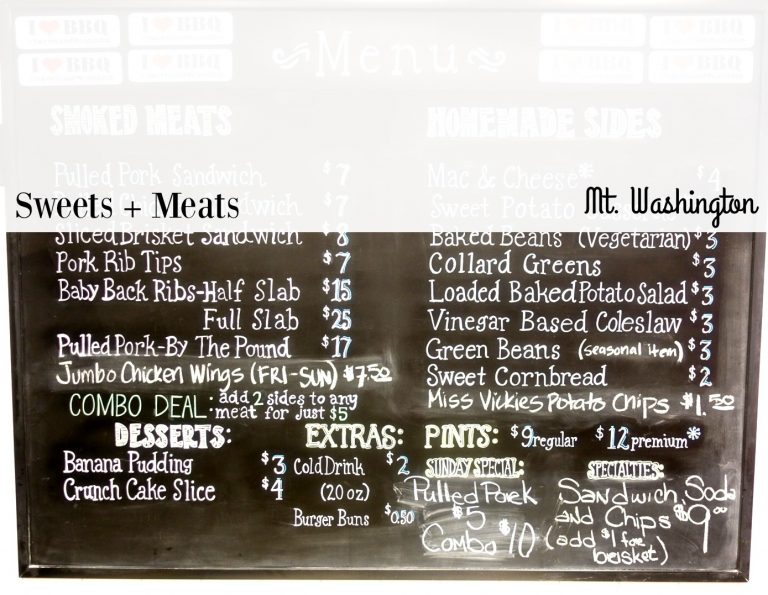 I ❤ BBQ
I ❤ BBQ
I ❤ BBQ
I ❤ BBQ
Menu
I ❤ BBQ
I ❤ BBQ
I ❤ BBQ
I ❤ BBQ
SMOKED MEATS
Pulled Pork Sandwich $7
Sandwich $7
Sweets + Meats
Sliced Brisket Sandwich $8
Pork Rib Tips $7
Baby Back Ribs-Half Slab $15
Full Slab $25
Pulled Pork-By The Pound $17
Jumbo Chicken Wings (FRI-SUN) $7.50
COMBO DEAL: add 2 sides to any
meat for just $5
HOMEMADE SIDES
Mac & Cheese* $4
Sweet Potato
Mt. Washington
Baked Beans (Vegetarian) $3
Collard Greens $3
Loaded Baked Potato Salad $3
Vinegar Based Coleslaw $3
Green Beans (seasonal item) $3
Sweet Cornbread $2
Miss Vickies Potato Chips $1.50
DESSERTS:
Banana Pudding $3
Crunch Cake Slice $4
EXTRAS:
Cold Drink $2
(20 oz)
Burger Buns $0.50
PINTS: $9 regular $12 premium*
SUNDAY SPECIAL:
Pulled Pork
$5
Combo $10
SPECIALTIES:
Sandwich, Soda
and Chips $9.00
(add $1 for
brisket)